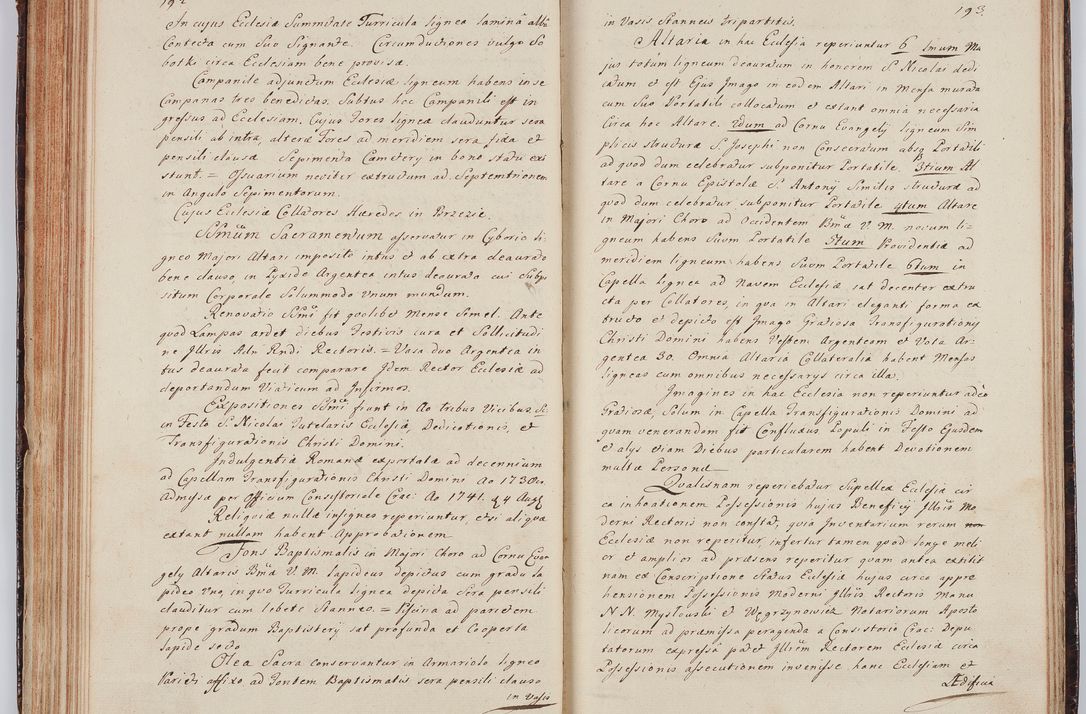 192
In cujus Ecclesiæ Summitate Turricula lignea laminâ albâ
Contecta cum Suo Signante. Circumductiones vulgo So
botki circa Ecclesiam bene provisæ.
Campanile adjunctum Ecclesiæ ligneum habens in se
Campanas tres benedictas. Subtus hoc Campanili est in
gressus ad Ecclesiam. Cujus Fores ligneæ clauduntur sera
pensili ab intra, alteræ Fores ad meridiem sera fixa et
pensili clausæ. Sepimenta Cæmetery in bono statu exi
stunt. = Ossuarium noviter extructum ad Septemtrionem
in Angulo Sepimentorum.
Cujus Ecclesiæ Collatores Hæredes in Brzezie.
SSmũm Sacramentum asservatur in Cyborio li-
gneo Majori Altari imposito intus et ab extra deaurato
bene clauso, in Pyxide Argentea intus deaurata cui Subpo
situm Corporale Solummodo unum mundum.
Renovatio SSmi fit quolibet Mense Semel. Ante
quod Lampas ardet diebus Festivis cura et Sollicitudi
ne Illris Adm Rndi Rectoris. = Vasa duo Argentea in
tus deaurata fecit comparare Idem Rector Ecclesiæ ad
deportandum Viaticum ad Infirmos.
Expositiones SSmi fiunt in Ao tribus Vicibus. Sc:
in Festo S. Nicolai Tutelaris Ecclesiæ, Dedicationis, et
Transfigurationis Christi Domini.
Indulgentiæ Romanæ exportatæ ad decennium
ad Capellam Transfigurationis Christi Domini Ao 1730.
admissæ per Officium Consistoriale Crac: Ao 1741. d 4 Aug
Reliquiæ nullæ insignes reperiuntur, etsi aliquæ
extant nullam habent Approbationem
Fons Baptismalis in Majori Choro ad Cornu Evan
gely Altaris Bmæ V. M. lapideus depictus cum gradu la
pideo uno, in quo Turricula lignea depicta Sera pensili
clauditur cum lebete Stanneo. = Piscina ad parietem
prope gradum Baptistery sat profunda et Cooperta
lapide secto
Olea Sacra Conservantur in Armariolo ligneo
Parieti affixo ad Fontem Baptismalis sera pensili clauso
in Vasis
193.
in Vasis Stanneis tripartitis.
Altaria in hac Ecclesia reperiuntur 6 1mum Ma
jus totum ligneum deauratum in honorem S. Nicolai dedi
catum et est Ejus Imago in eodem Altari in Mensa murata
cum Suo Portatili collocatum et extant omnia necessaria
Circa hoc Altare. 2dum ad Cornu Evangely ligneum Sim
plicis structuræ S. Josephi non Consecratum absq Portatili
ad quod dum celebratur subponitur Portatile. 3tium Al
tare a Cornu Epistolæ S. Antonij Similis structuræ ad
quod dum celebratur subponitur Portatile 4tum Altare
in Majori Choro ad Occidentem Bmæ V. M. novum li=
gneum habens Suum Portatile 5tum Providentiæ ad
meridiem ligneum habens Suum Portatile 6tum in
Capella lignea ad Navem Ecclesiæ sat decenter extru
cta per Collatores, in qua in Altari eleganti forma ex
tructo et depicto est Imago Gratiosa Transfigurationis
Christi Domini habens Vestem Argenteam et Vota Ar-
gentea 30. Omnia Altaria Collateralia habent Mensas
ligneas cum omnibus necessarys circa illa.
Imagines in hac Ecclesia non reperiuntur adeo
Gratiosæ, Solum in Capella Transfigurationis Domini ad
quam venerandam fit Confluxus Populi in Festo Ejusdem
et alys etiam Diebus particularem habent Devotionem
multæ Personæ
Qualisnam reperiebatur Supellex Ecclesiæ cir
ca inhoationem Possessionis hujus Beneficij Illris Mo
derni Rectoris non constat, quia Inventarium rerum non
Ecclesiæ non reperitur infertur tamen quod longe meli
or et amplior ad præsens reperitur quam antea extitit
nam ex Conscriptione Status Ecclesiæ hujus circa appre
hensionem Possessionis Moderni Illris Rectoris Manu
N N. Mysłowski et Węgrzynowicz Notariorum Aposto
licorum ad præmissa peragenda a Consistorio Crac: Depu
tatorum expressa patet Illrem Rectorem Ecclesiæ circa
Possessionis assecutionem invenisse hanc Ecclesiam et
Ædificia